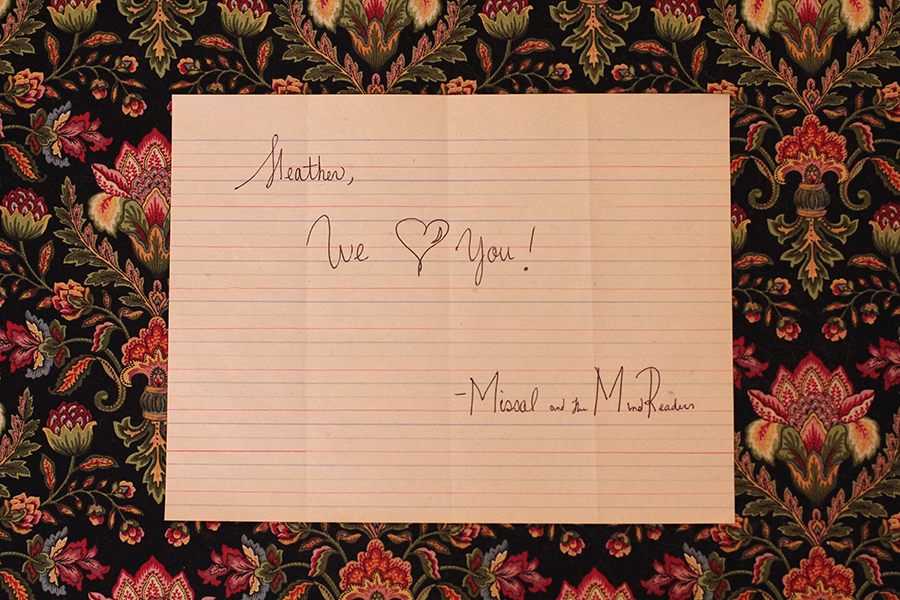 Heather,
We ♡ You!
-Missal and the MindReaders